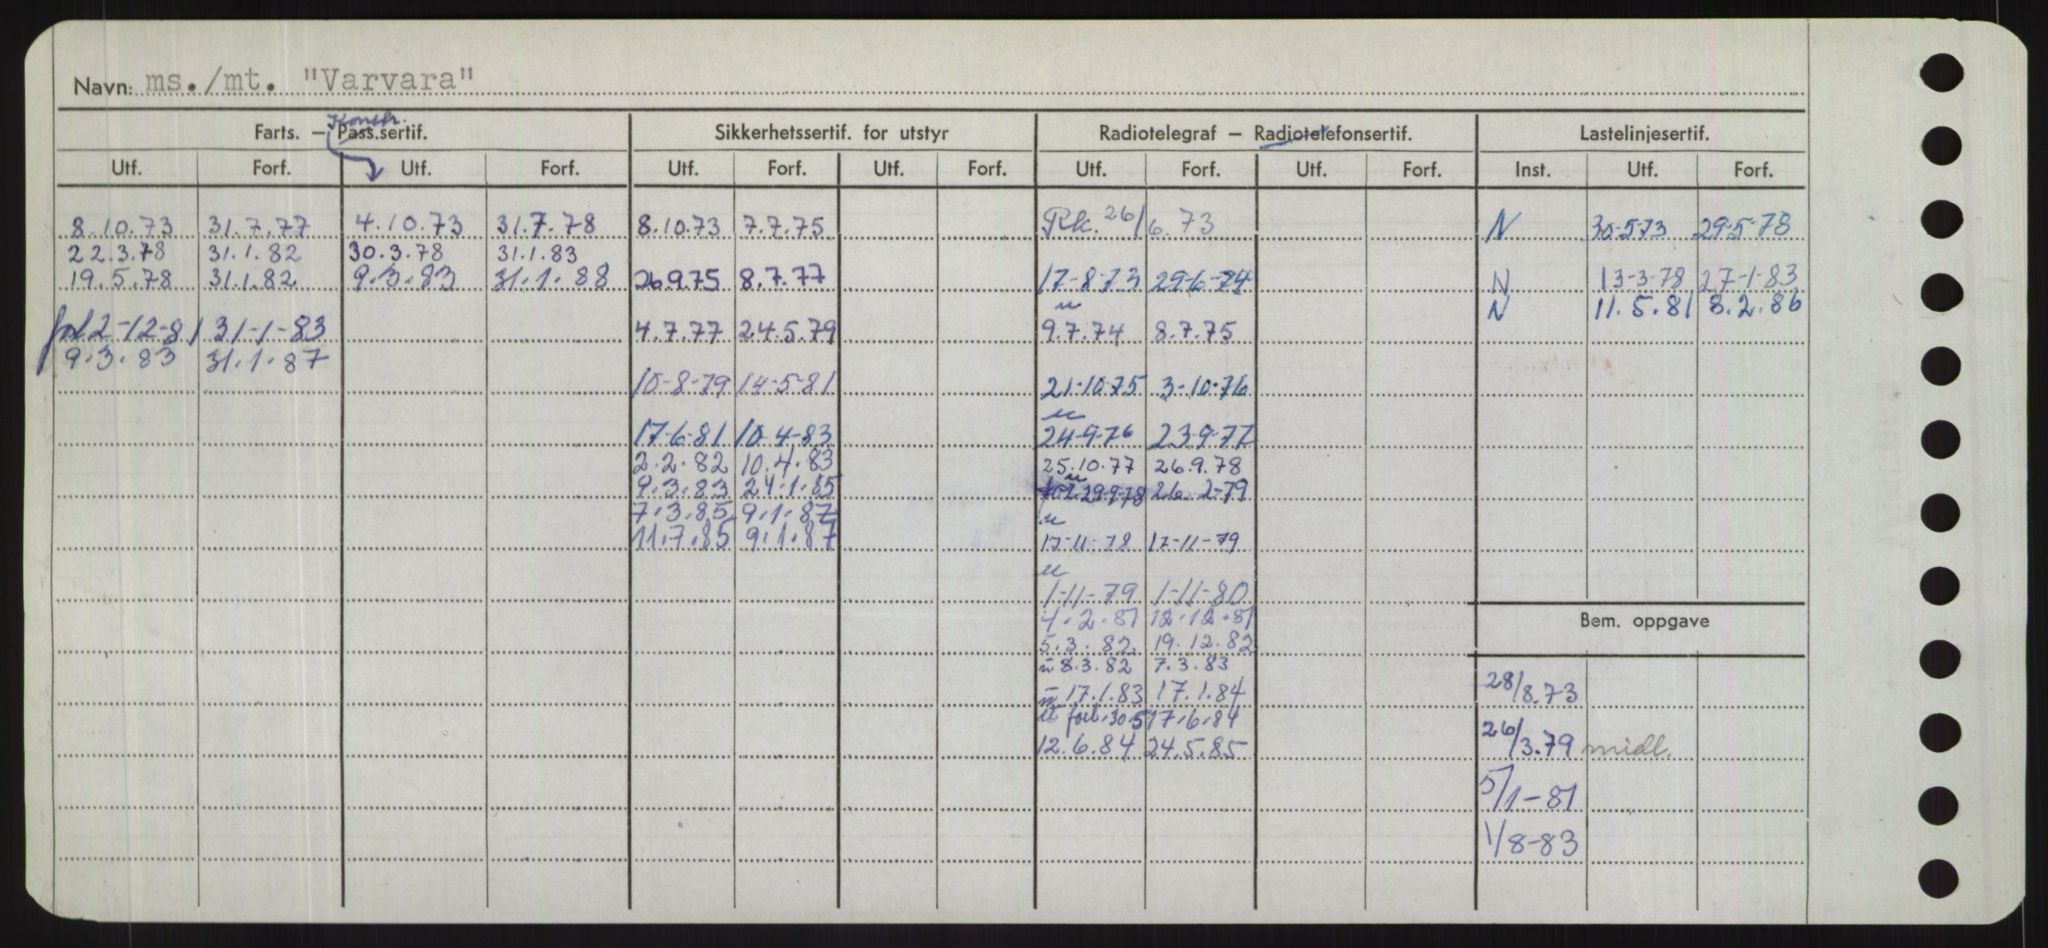 Navn: ms./mt. "Varvara"
Konstr.
Farts. – Pass.sertif. Sikkerhetssertif. for utstyr Radiotelegraf – Radiotelefonsertif. Lastelinjesertif.
Utf. Forf. Utf. Forf. Utf. Forf. Utf. Forf. Utf. Forf. Utf. Forf. Inst. Utf. Forf.
8.10.73 31.7.77 4.10.73 31.7.78 8.10.73 7.7.75 Rk. 26/6.73 N 30-5-73 29-5-78
22.3.78 31.1.82 30.3.78 31.1.83
19.5.78 31.1.82 9.3.83 31.1.88 26.9.75 8.7.77 17-8-73 29-6-74 N 13-3-78 27-1-83
u N 11.5.81 8.2.86
forl 2-12-81 31-1-83 4.7.77 24.5.79 9.7.74 8.7.75
9.3.83 31.1.87
10-8-79 14-5-81 21-10-75 3-10-76
u
17-6-81 10-4-83 24-9-76 23-9-77
2.2.82 10.4.83 25.10.77 26.9.78
u
9.3.83 24.1.85 forl 29-9-78 26.2-79
7.3.85 9.1.87 u
11.7.85 9.1.87 17-11-78 17-11-79
u
1-11-79 1-11-80
4.2.81 12.12.81 Bem. oppgave
5.3.82 19.12.82
u 8.3.82 7.3.83
u 17.1.83 17.1.84 28/8.73
u forl. 30.5 17.6.84
12.6.84 24.5.85 26/3.79 midl.
5/1-81
1/8-83